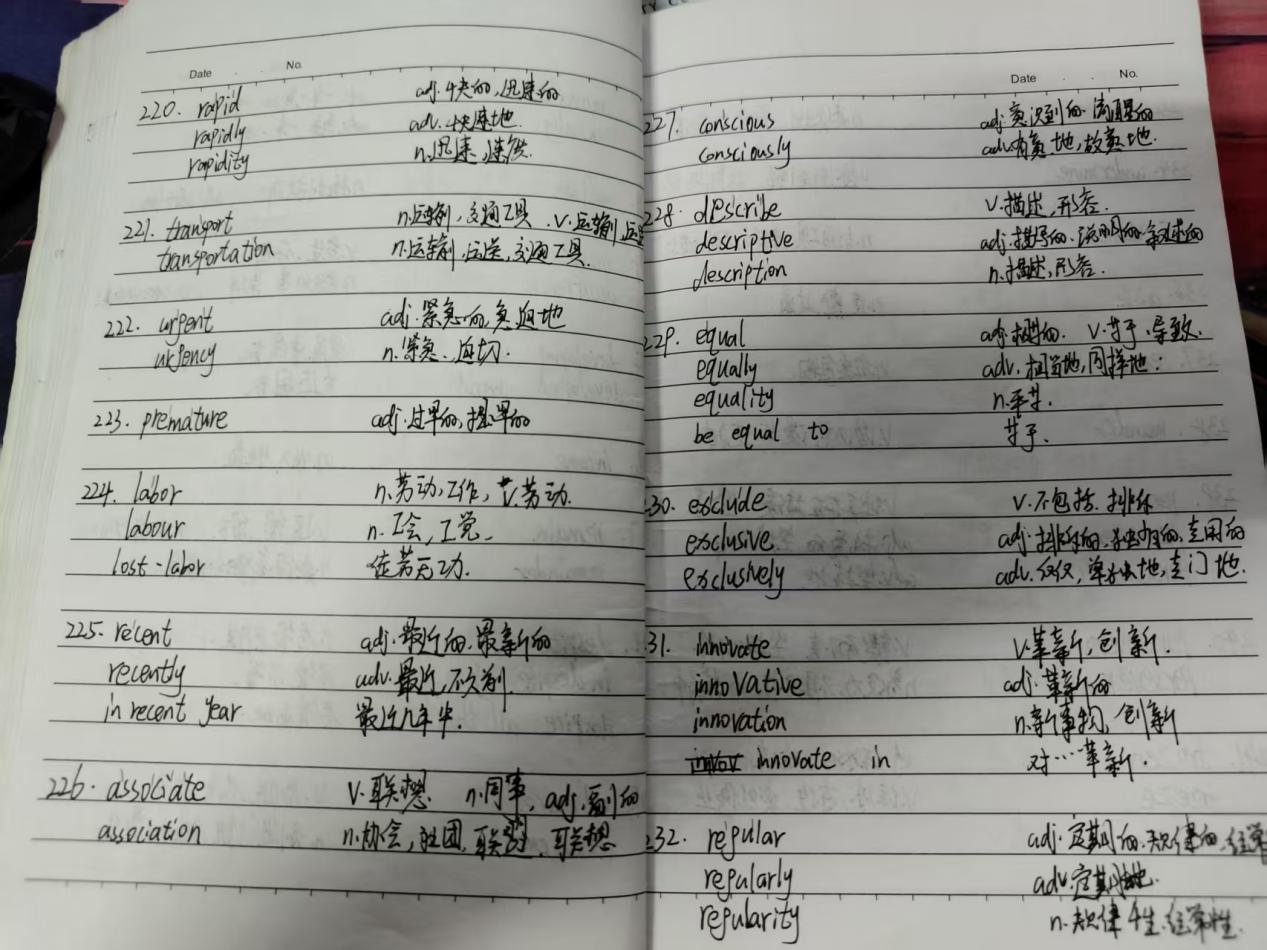 TY CO
Date No.
220. rapid adj.快的,迅速的
rapidly adv.快速地.
rapidity n.迅速,速度.
221. transport n.运输,交通工具. v.运输,运送
transportation n.运输,运送,交通工具.
222. urgent adj.紧急的,急迫地
urgency n.紧急、迫切.
223. premature adj.过早的,提早的
224. labor n.劳动,工作, v.劳动.
labour n.工会,工党.
lost-labor 徒劳无功.
225. recent adj.最近的.最新的
recently adv.最近,不久前.
in recent year 最近几年中.
226. associate v.联想. n.同事, adj.副的
association n.协会,社团,联盟,联想
Date No.
227. conscious adj.意识到的.清醒的
consciously adv.有意地,故意地.
228. describe v.描述,形容.
descriptive adj.描写的.说明的.叙述的
description n.描述,形容.
229. equal adj.相等的. v.等于,导致.
equally adv.相当地,同样地;
equality n.平等.
be equal to 等于.
30. exclude v.不包括.排斥
exclusive adj.排外的.独有的,专用的
exclusively adv.仅仅,单独地,专门地.
31. innovate v.革新,创新.
innovative adj.革新的
innovation n.新事物,创新
innovate in 对…革新.
232. regular adj.定期的.规律的,经常
regularly adv.定期地.
regularity n.规律性.经常性.